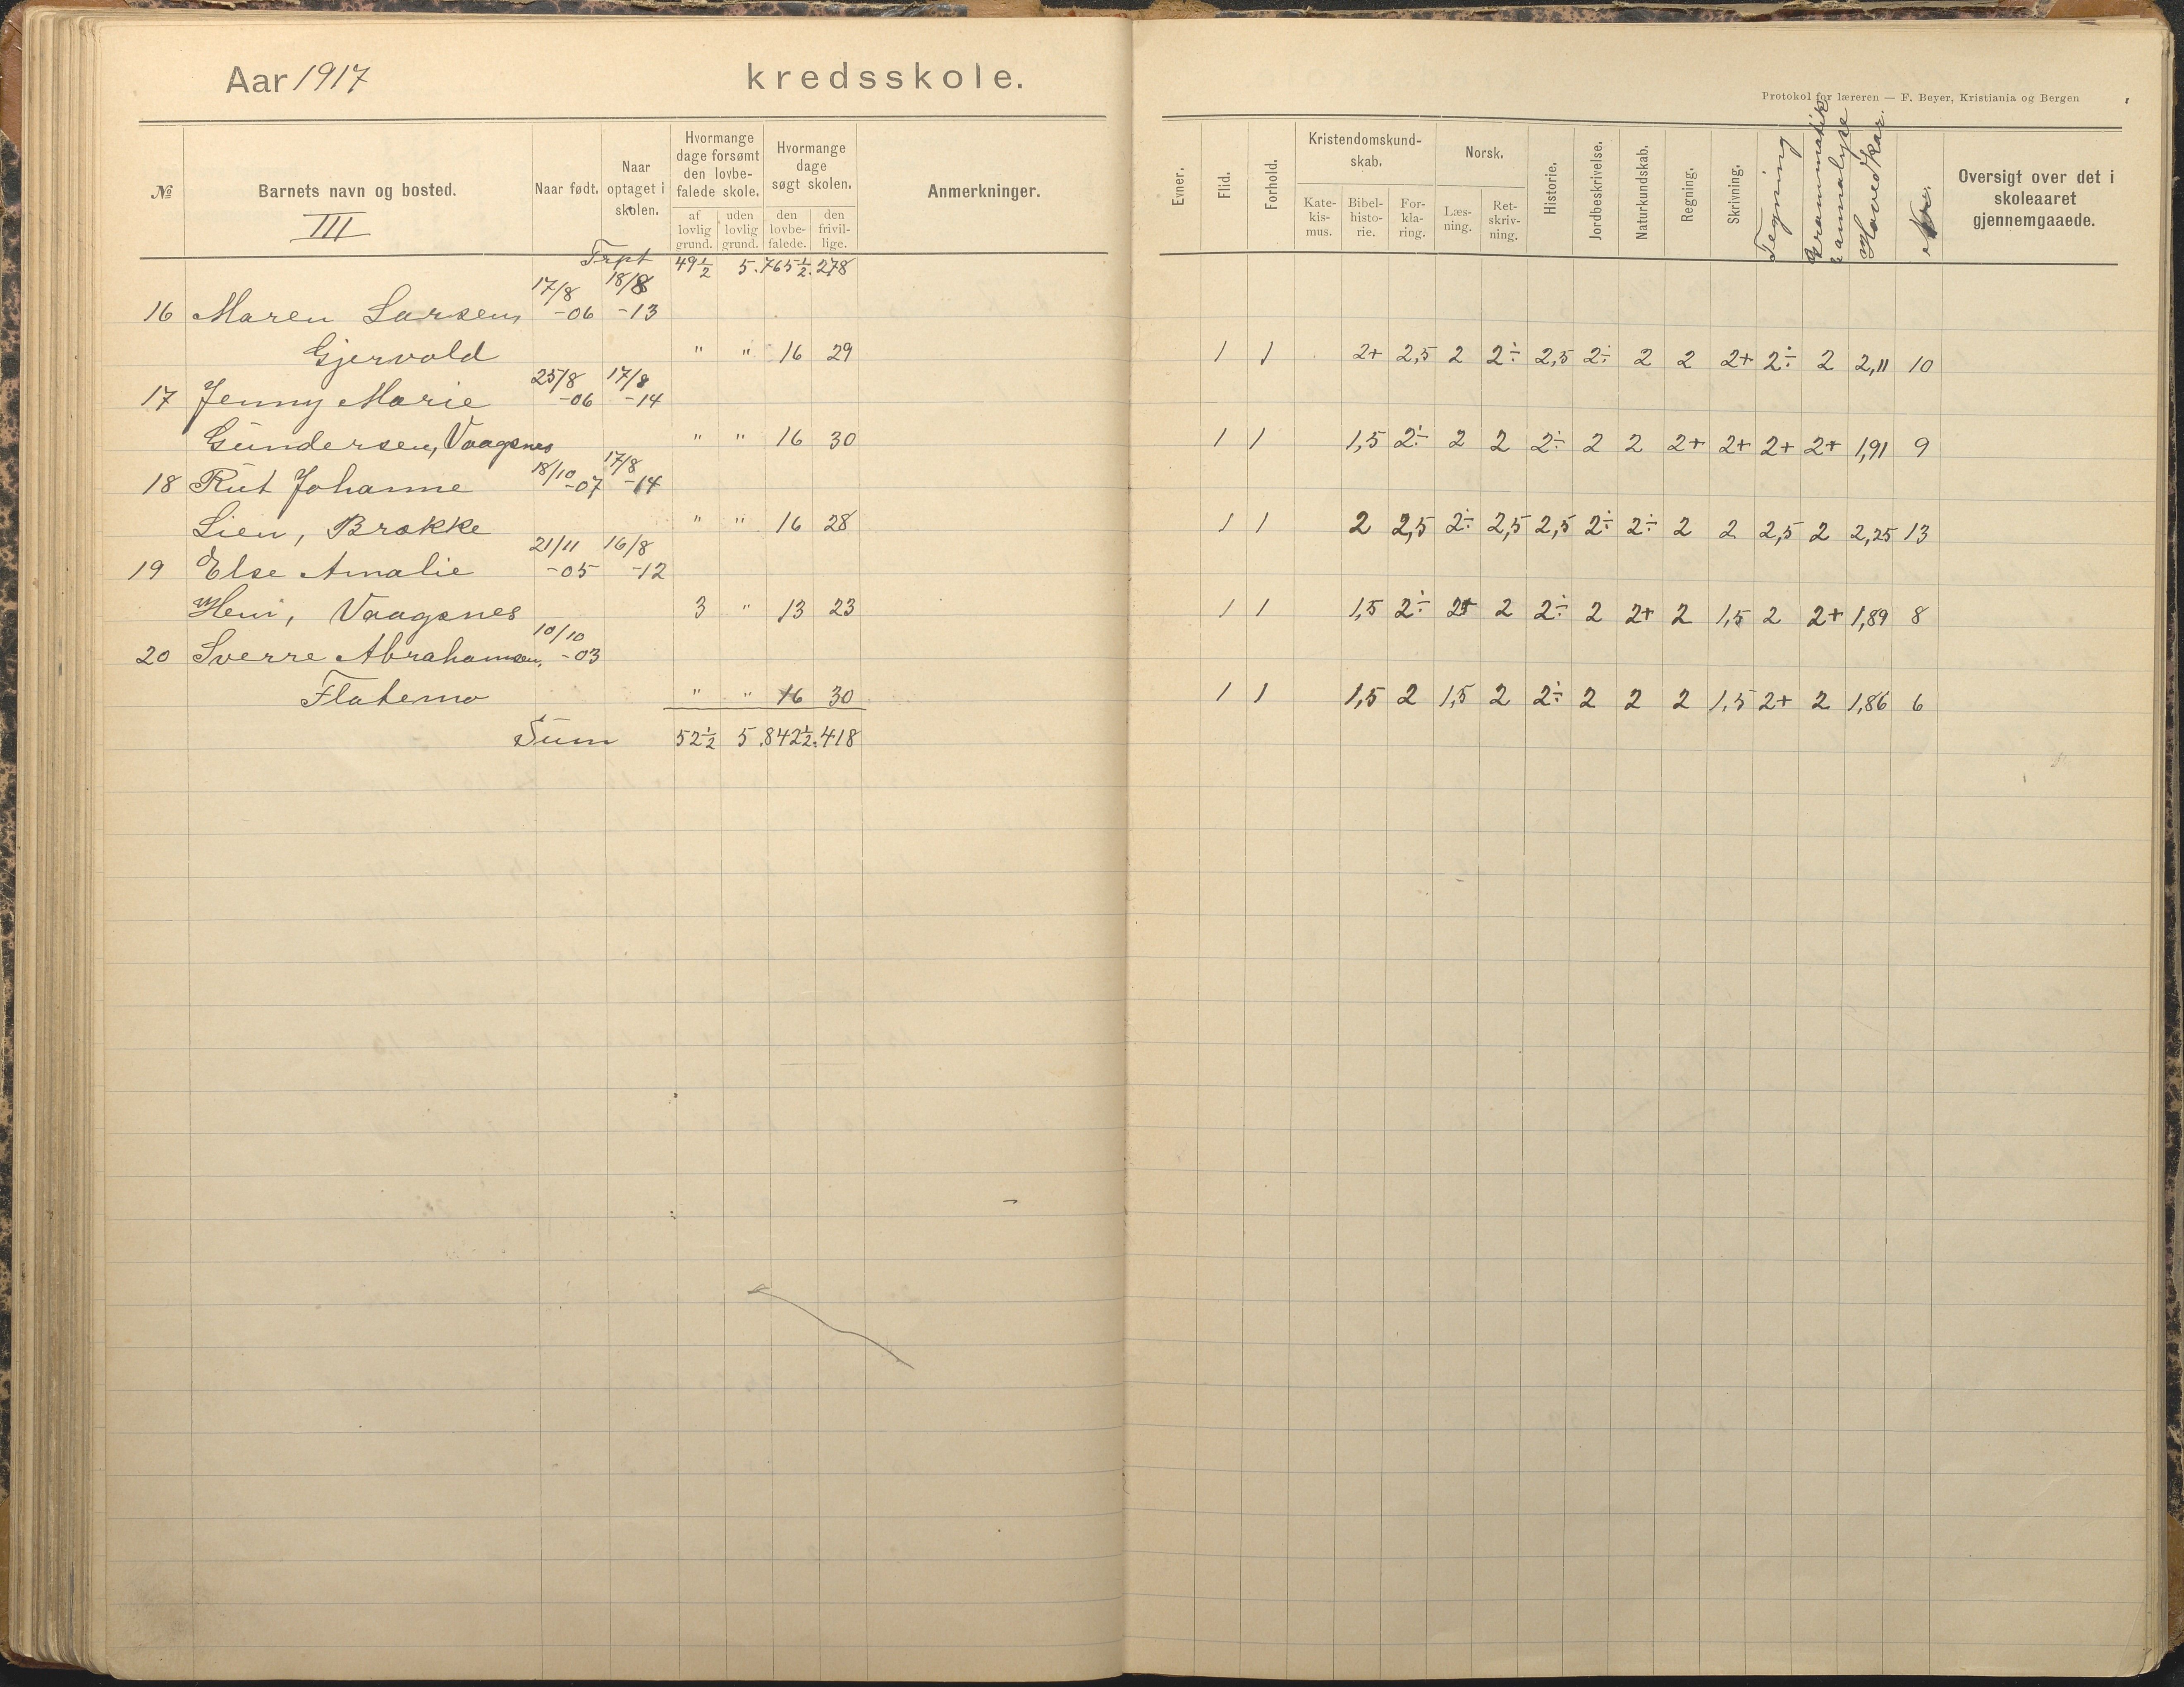 Aar 1917 kredsskole.
№ Barnets navn og bosted. Naar født. Naar optaget i skolen. Hvormange dage forsømt den lovbefalede skole. Hvormange dage søgt skolen. Anmerkninger.
af lovlig grund. uden lovlig grund. den lovbefalede. den frivillige.
III
Trpt 49½ 5. 765½. 278
17/8 18/8
16 Maren Larsen, -06 -13
Gjervold " " 16 29
25/8 17/8
17 Jenny Marie -06 -14
Gundersen, Vaagsnes " " 16 30
18/10 17/8
18 Rut Johanne -07 -14
Lien, Brække " " 16 28
21/11 16/8
19 Else Amalie -05 -12
Hem, Vaagsnes 3 " 13 23
10/10
20 Sverre Abrahamsen, -03
Flatemo " " 16 30
Sum 52½ 5. 842½. 418
Protokol for læreren — F. Beyer, Kristiania og Bergen
Evner. Flid. Forhold. Kristendomskundskab. Norsk. Historie. Jordbeskrivelse. Naturkundskab. Regning. Skrivning. Tegning Grammatik & annalyse Hovedkar. Nr. Oversigt over det i skoleaaret gjennemgaaede.
Katekismus. Bibelhistorie. Forklaring. Læsning. Retskrivning.
1 1 2+ 2,5 2 2÷ 2,5 2÷ 2 2 2+ 2÷ 2 2,11 10
1 1 1,5 2÷ 2 2 2÷ 2 2 2+ 2+ 2+ 2+ 1,91 9
1 1 2 2,5 2÷ 2,5 2,5 2÷ 2÷ 2 2 2,5 2 2,25 13
1 1 1,5 2÷ 2+ 2 2÷ 2 2+ 2 1,5 2 2+ 1,89 8
1 1 1,5 2 1,5 2 2÷ 2 2 2 1,5 2+ 2 1,86 6